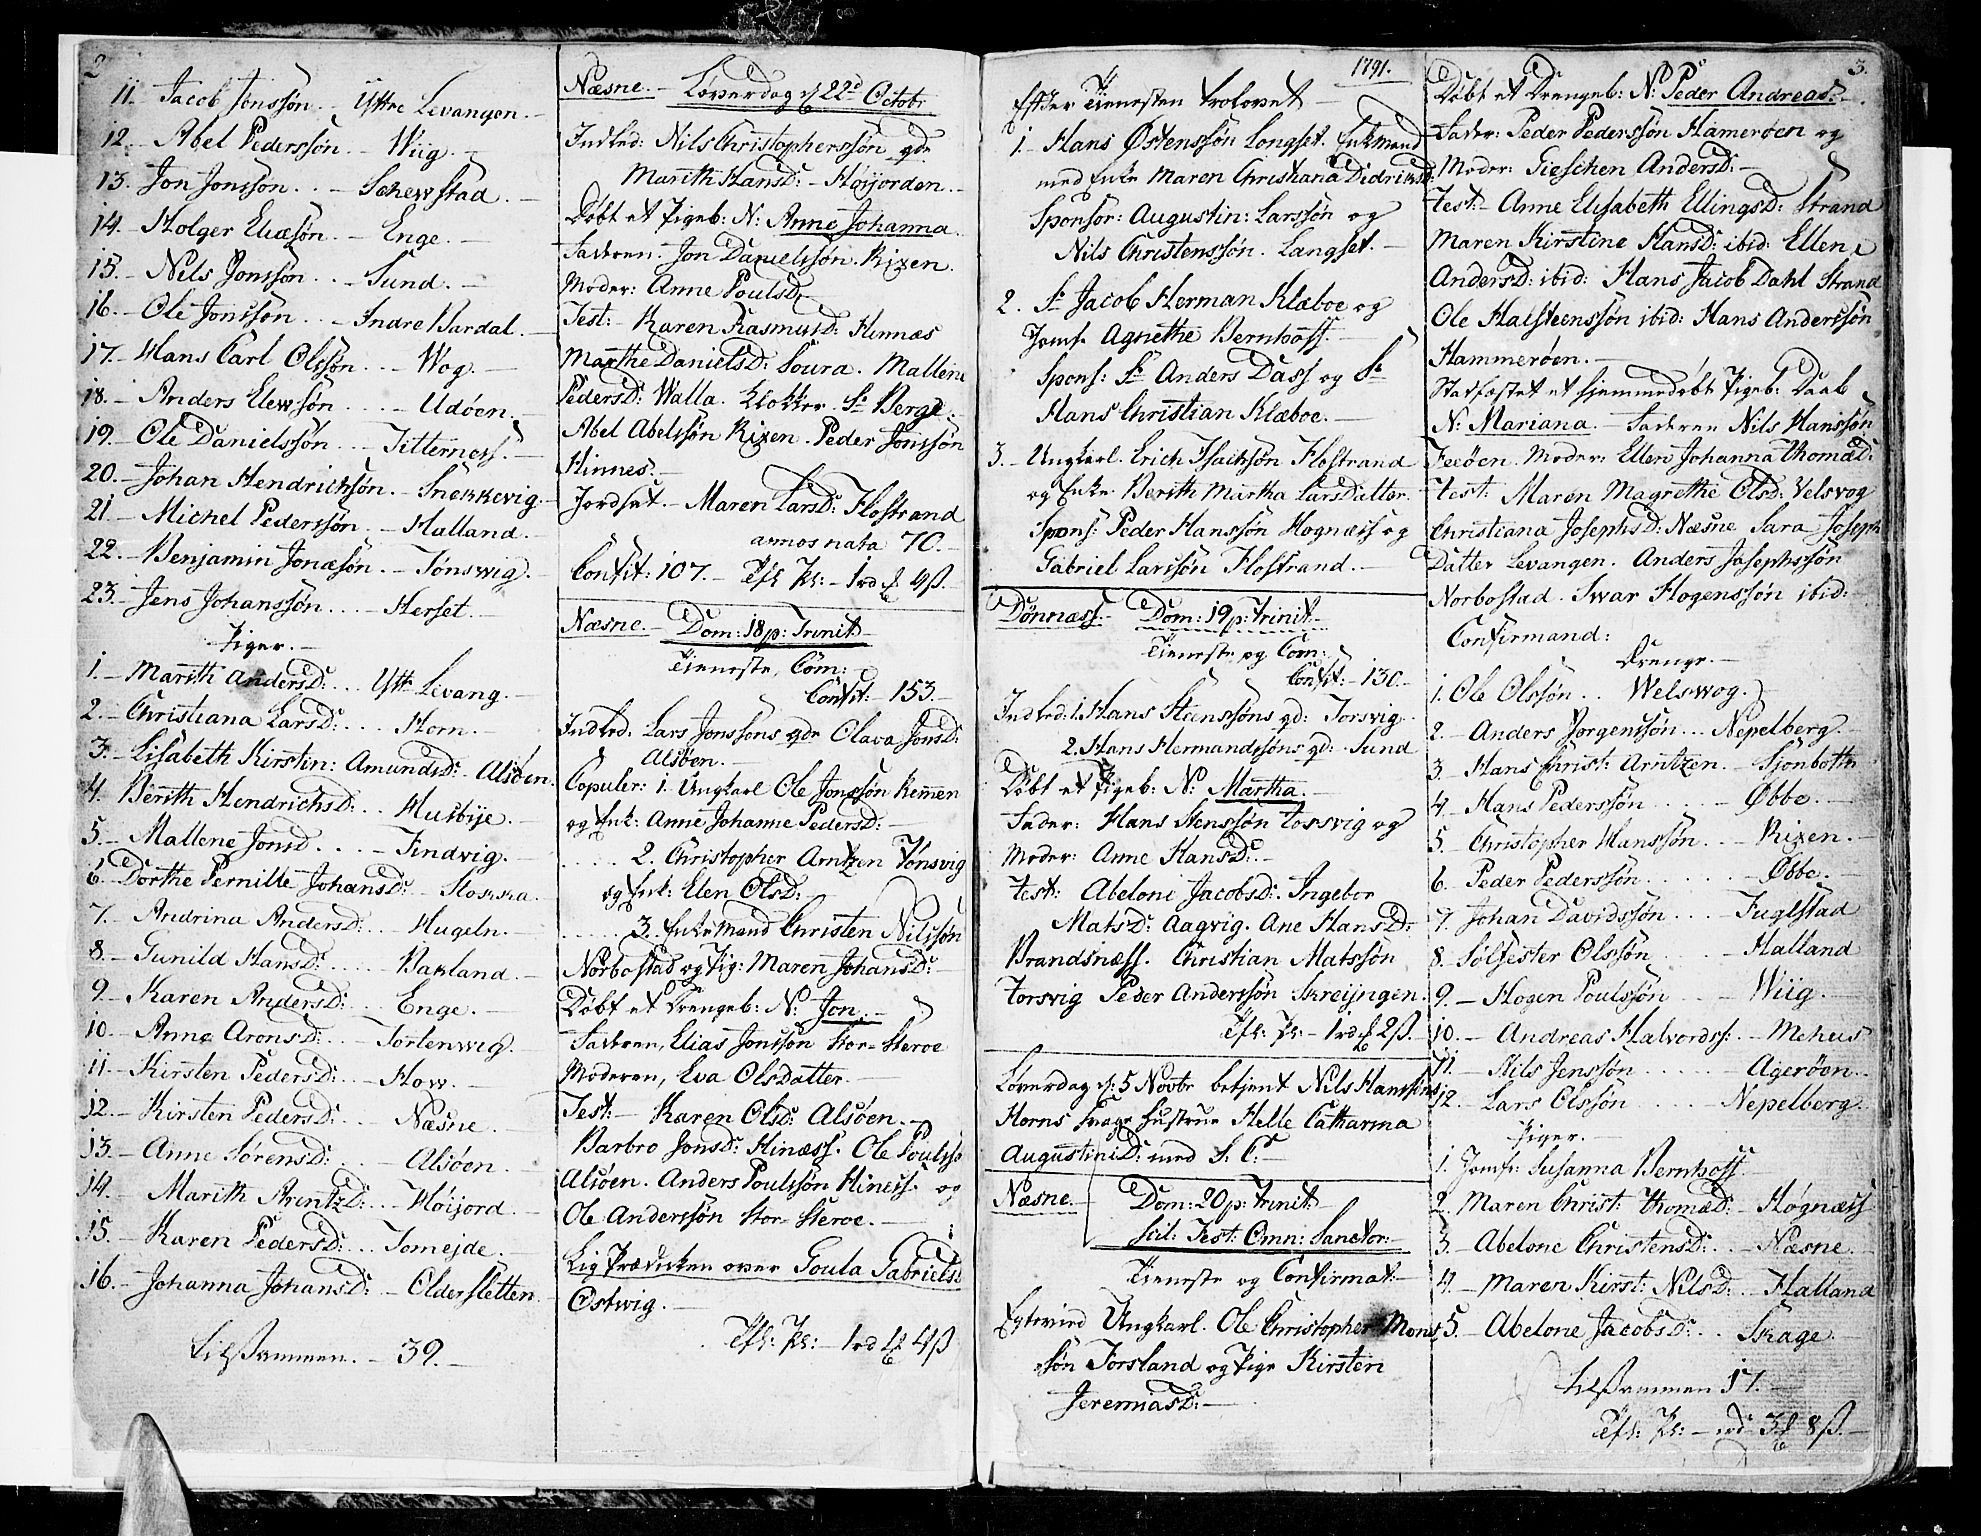 2
11. Jacob Jonssøn .. Yttre Levangen.
12. Abel Pederssøn .. Wiig.
13. Jon Jonssøn ... Schewstad.
14. Holger Eliæsøn .. Enge.
15. Nils Jonssøn ... Sund.
16. Ole Jonssøn ... Indre Bardal.
17. Hans Carl Olssøn ... Wog.
18. Anders Elewsøn .... Udøen.
19. Ole Danielssøn ... Titterness.
20. Johan Hendrichsøn .. Snekkevig.
21. Michel Pederssøn .. Halland.
22. Benjamin Jonæsøn .. Tønswig.
23. Jens Johanssøn .... Herset.
Piger.
1. Marith Andersd: ... Ytt: Levang.
2. Christiana Larsd: ... Horn.
3. Lisabeth Kirstin: Amundsd: Alsøen.
4. Berith Hendrichsd: .. Husbije.
5. Mallene Jonsd .... Findvig.
6. Dorthe Pernille Johansd: Slokka.
7. Andrina Andersd: .. Hugeln.
8. Gunild Hansd: .... Bakland.
9. Karen Andersd: .. Enge.
10. Anne Aronsd: .. Torlenwig.
11. Kirsten Pedersd: .. How.
12. Kirsten Pedersd: ... Næsne.
13. Anne Sørensd: .... Alsøen.
14. Marith Arentzd: ... Høijord.
15. Karen Pedersd: ... Tomejde.
16. Johanna Johansd: Oldersletten.
tilsammen. 39.
Næsne. Løverdag d 22d Octobr
Indled: Nils Christopherssøn qde
Marith Hansd: Høijorden.
Døbt et Pigeb: N: Anne Johanna.
Faderen. Jon Danielssøn. Rixen.
Moder: Anne Poulsd:
Test: Karen Rasmusd: Hinnæs
Marthe Danielsd: Soura. Mallene
Pedersd: Walla. Klokker Sr Berg:
Abel Abelssøn Rixen. Peder Jonssøn
Hinnes.
Jordsat. Maren Larsd: Flostrand
annos nata 70.
Confit: 107. Tfl: Pl: 1 rd 4ß.
Næsne. Dom: 18 p: Trinit
Tieneste, Com:
Confit: 153.
Indled: Lars Jonssøns qde Olava Jonsd:
Alsøen.
Copuler: 1. Ungkarl Ole Jonssøn Remen
og Enk: Anne Johanne Pedersd:
.... 2. Christopher Arntzen Tønsvig
og Enk: Elen Olsd:
..... 3. Enkemand Christen Nilssøn
Norbostad og Pig: Maren Johansd:
Døbt et Drengeb: N: Jon.
Faderen, Elias Jonssøn Stor-Steroe
Moderen, Eva Olsdatter.
Test: Karen Olsd: Alsøen.
Barbro Jonsd: Hinæss. Ole Poulssø
Alsøen. Anders Poulssøn Hiness. og
Ole Anderssøn Stor-Steroe.
Ligprædicken over Goula Gabrielsd
Ostwig.
Tfl: Pl: 1 rd 4ß
1791.
3.
Efter Tienesten trolovet
1. Hans Østenssøn Langset. Enkemand
med Enke Maren Christiana Didriksd:
Sponsor: Augustin: Larssøn og
Nils Christenssøn. Langset.
2. Sr Jacob Herman Klæboe og
Jomf. Agnethe Bernhoff.
Spons: Sr Anders Dass og Sr
Hans Christian Klæboe.
3. Ungkarl. Erich Isachsøn Flostrand
og Enke Berith Martha Larsdatter.
Spons: Peder Hanssøn Hognæss og
Gabriel Larssøn Flostrand.
Dönnæss. Dom: 19 p: Trinit
Tieneste og Com:
Confit: 130.
Indled: 1. Hans Stenssøns qd: Torsvig.
2. Hans Hermandssøns qd: Sund
Døbt et Pigeb: N: Martha.
Fader: Hans Stenssøn Torsvig og
Moder: Anne Hansd:
Test: Abelone Jacobsd: Ingebor
Matsd: Aagvig. Ane Hansd:
Brandsnæss. Christian Matssøn
Torsvig Peder Anderssøn Skreijngen.
Tfl: Pl: 1 rd 2ß.
Løverdag d: 5 Novbr betjent Nils Hanssøns
Horns svage Hustrue Helle Catharina
Augustinid: med S: C:
Næsne. Dom: 20 p: Trinit:
Scil: Fest: Omn: Sanctor:
Tieneste og Confirmat:
Egteviid Ungkarl. Ole Christopher Mons
søn Forsland og Pige Kirsten
Jeremiasd:
Døbt et Drengeb: N: Peder Andreas.
Fader: Peder Pederssøn Hamerøen og
Moder: Gieschen Andersd:
Test: Anne Elisabeth Ellingsd: Strand
Maren Kirstine Hansd: ibid: Ellen
Andersd: ibid: Hans Jacob Dahl Strand
Ole Halsteenssøn ibid: Hans Anderssøn
Hammerøen.
Stadfæstet et hjemmedøbt Pigeb: Daab
N: Mariana. Faderen Nils Hanssøn
Feeøen. Moder: Ellen Johanna Thomæd:
Test: Maren Magrethe Olsd: Velsvog
Christiana Josephsd: Næsne Sara Joseph
Datter Levangen. Anders Josephssøn
Norbostad. Iwar Hogenssøn ibid:
Confirmand:
Drenge.
1. Ole Olssøn .. Welswog.
2. Anders Jørgenssøn ... Nepelberg.
3. Hans Christ: Arntzen. Sjonbotn
4. Hans Pederssøn .... Øbbe.
5. Christopher Hanssøn ... Rixen.
6. Peder Pederssøn ..... Øbbe.
7. Johan Davidssøn .... Fuglstad
8. Sølfester Olssøn .... Halland
9. Hogen Poulssøn .... Wiig.
10. Andreas Halvordss: .. Mehus
11. Nils Jenssøn ..... Agerøen.
12. Lars Olssøn .... Nepelberg.
Piger.
1. Jomfr: Susanna Bernhoff
2. Maren Christ: Thomæd: Høgnæss
3. Abelone Christensd: .. Næsne
4. Maren Kirst: Nilsd: .. Halland
5. Abelone Jacobsd: .. Skage.
tilsammen 17.
Tfl: Pl: rd 3 8ß.